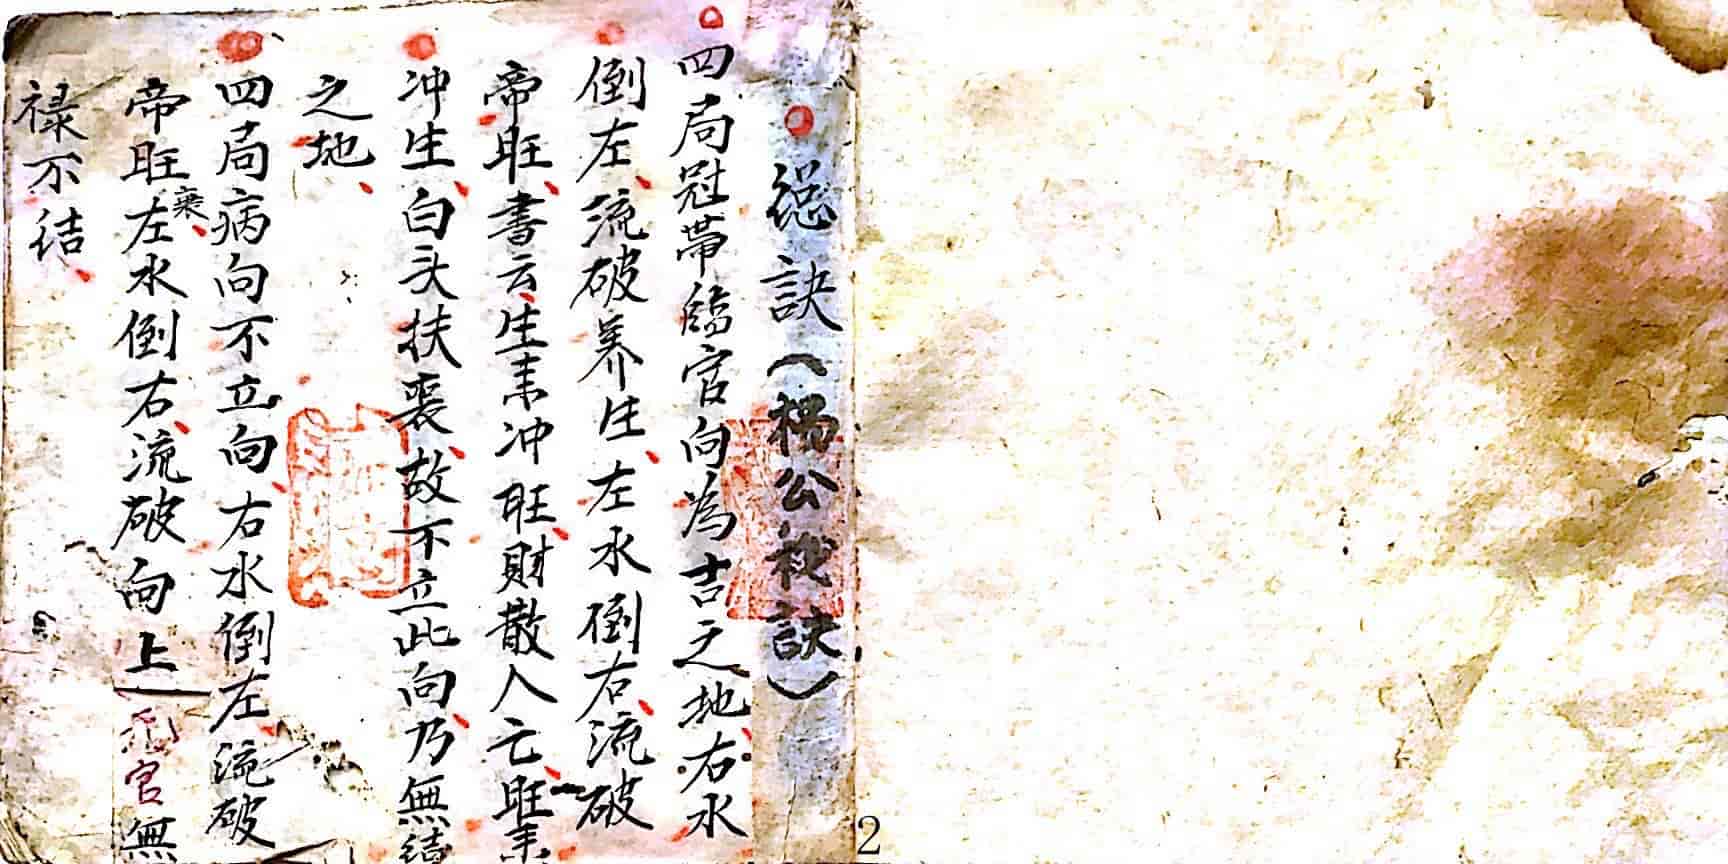 總訣（楊公秘訣）
四局冠帶臨官向為吉之地右水
倒左流破养生左水倒右流破
帝旺書云生来冲旺財散人亡旺来
冲生白头扶丧故不立此向乃無結
之地
四局病向不立向右水倒左流破
帝旺衰左水倒右流破向上 官無
禄不结
2